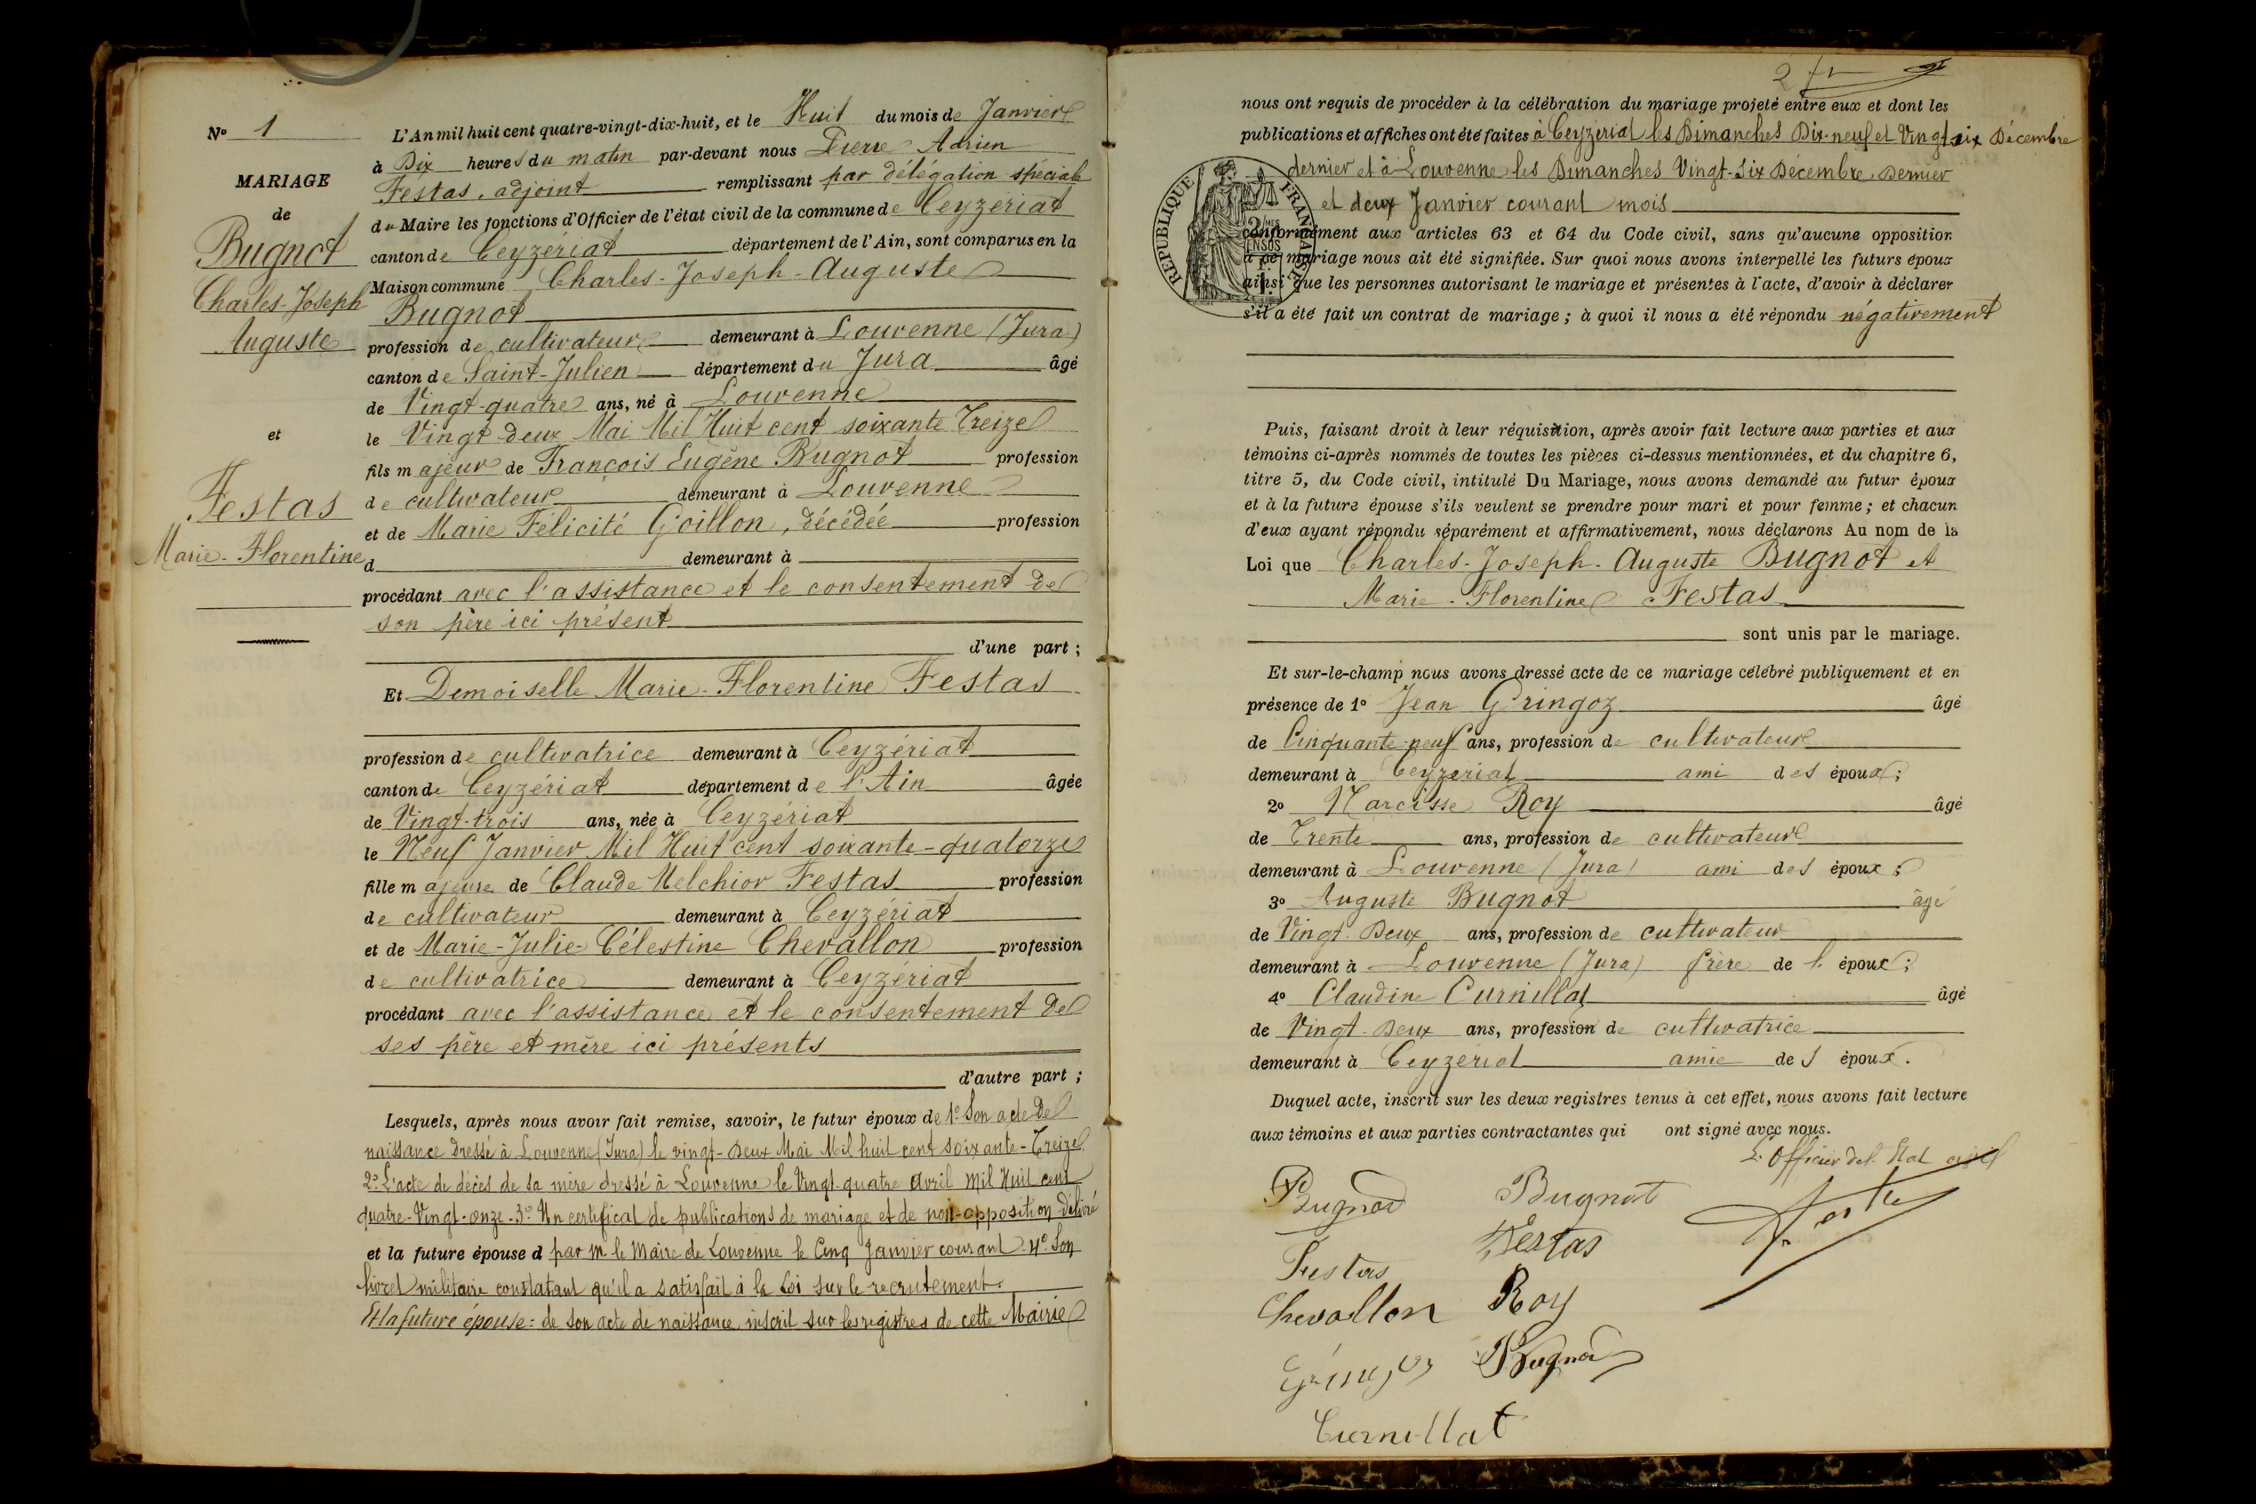 N° 1
MARIAGE
de
Bugnot
Charles-Joseph
Auguste
et
Festas
Marie-Florentine
L'An mil huit cent quatre-vingt-dix-huit, et le Huit du mois de Janvier
à Dix heures du matin par-devant nous Pierre Adrien
Festas, adjoint remplissant par délégation spéciale
du Maire les fonctions d'Officier de l'état civil de la commune de Ceyzériat
canton de Ceyzériat département de l'Ain, sont comparus en la
Maison commune Charles-Joseph-Auguste
Bugnot
profession de cultivateur demeurant à Louvenne (Jura)
canton de Saint-Julien département du Jura âgé
de Vingt-quatre ans, né à Louvenne
le Vingt deux Mai Mil Huit cent soixante Treize
fils majeur de François Eugène Bugnot profession
de cultivateur demeurant à Louvenne
et de Marie Félicité Goillon, décédée profession
d demeurant à
procédant avec l'assistance et le consentement de
son père ici présent
d'une part ;
Et Demoiselle Marie-Florentine Festas
profession de cultivatrice demeurant à Ceyzériat
canton de Ceyzériat département de l'Ain âgée
de Vingt-trois ans, née à Ceyzériat
le Neuf Janvier Mil Huit cent soixante-quatorze
fille majeure de Claude Melchior Festas profession
de cultivateur demeurant à Ceyzériat
et de Marie-Julie-Célestine Chevallon profession
de cultivatrice demeurant à Ceyzériat
procédant avec l'assistance et le consentement de
ses père et mère ici présents
d'autre part ;
Lesquels, après nous avoir fait remise, savoir, le futur époux de 1° Son acte de
naissance dressé à Louvenne (Jura) le vingt-deux Mai Mil huit cent soixante-Treize
2° L'acte de décès de sa mère dressé à Louvenne le Vingt quatre avril Mil Huit cent
quatre-Vingt-onze. 3° Un certificat de publications de mariage et de non-opposition délivré
et la future épouse d par M le Maire de Louvenne le Cinq Janvier courant. 4° Son
livret militaire constatant qu'il a satisfait à la Loi sur le recrutement.
Et la future épouse : de son acte de naissance inscrit sur les registres de cette Mairie
2
nous ont requis de procéder à la célébration du mariage projeté entre eux et dont les
publications et affiches ont été faites à Ceyzériat les Dimanches Dix-neuf et Vingt six Décembre
dernier et à Louvenne les Dimanches Vingt-six Décembre dernier
et deux Janvier courant mois
conformément aux articles 63 et 64 du Code civil, sans qu'aucune opposition
à ce mariage nous ait été signifiée. Sur quoi nous avons interpellé les futurs époux
ainsi que les personnes autorisant le mariage et présentes à l'acte, d'avoir à déclarer
s'il a été fait un contrat de mariage ; à quoi il nous a été répondu négativement
RÉPUBLIQUE FRANÇAISE
Puis, faisant droit à leur réquisition, après avoir fait lecture aux parties et aux
témoins ci-après nommés de toutes les pièces ci-dessus mentionnées, et du chapitre 6,
titre 5, du Code civil, intitulé Du Mariage, nous avons demandé au futur époux
et à la future épouse s'ils veulent se prendre pour mari et pour femme ; et chacun
d'eux ayant répondu séparément et affirmativement, nous déclarons Au nom de la
Loi que Charles-Joseph-Auguste Bugnot et
Marie-Florentine Festas
sont unis par le mariage.
Et sur-le-champ nous avons dressé acte de ce mariage célébré publiquement et en
présence de 1° Jean Gringoz âgé
de Cinquante-neuf ans, profession de cultivateur
demeurant à Ceyzériat ami des époux ;
2° Narcisse Roy âgé
de Trente ans, profession de cultivateur
demeurant à Louvenne (Jura) ami des époux ;
3° Auguste Bugnot âgé
de Vingt-Deux ans, profession de cultivateur
demeurant à Louvenne (Jura) frère de l'époux ;
4° Claudine Curnillat âgé
de Vingt-Deux ans, profession de cultivatrice
demeurant à Ceyzériat amie des époux.
Duquel acte, inscrit sur les deux registres tenus à cet effet, nous avons fait lecture
aux témoins et aux parties contractantes qui ont signé avec nous.
L'Officier de l'Etat civil
Bugnot Bugnot
Festas Festas
Chevallon Roy
Gringoz Bugnot
Curnillat